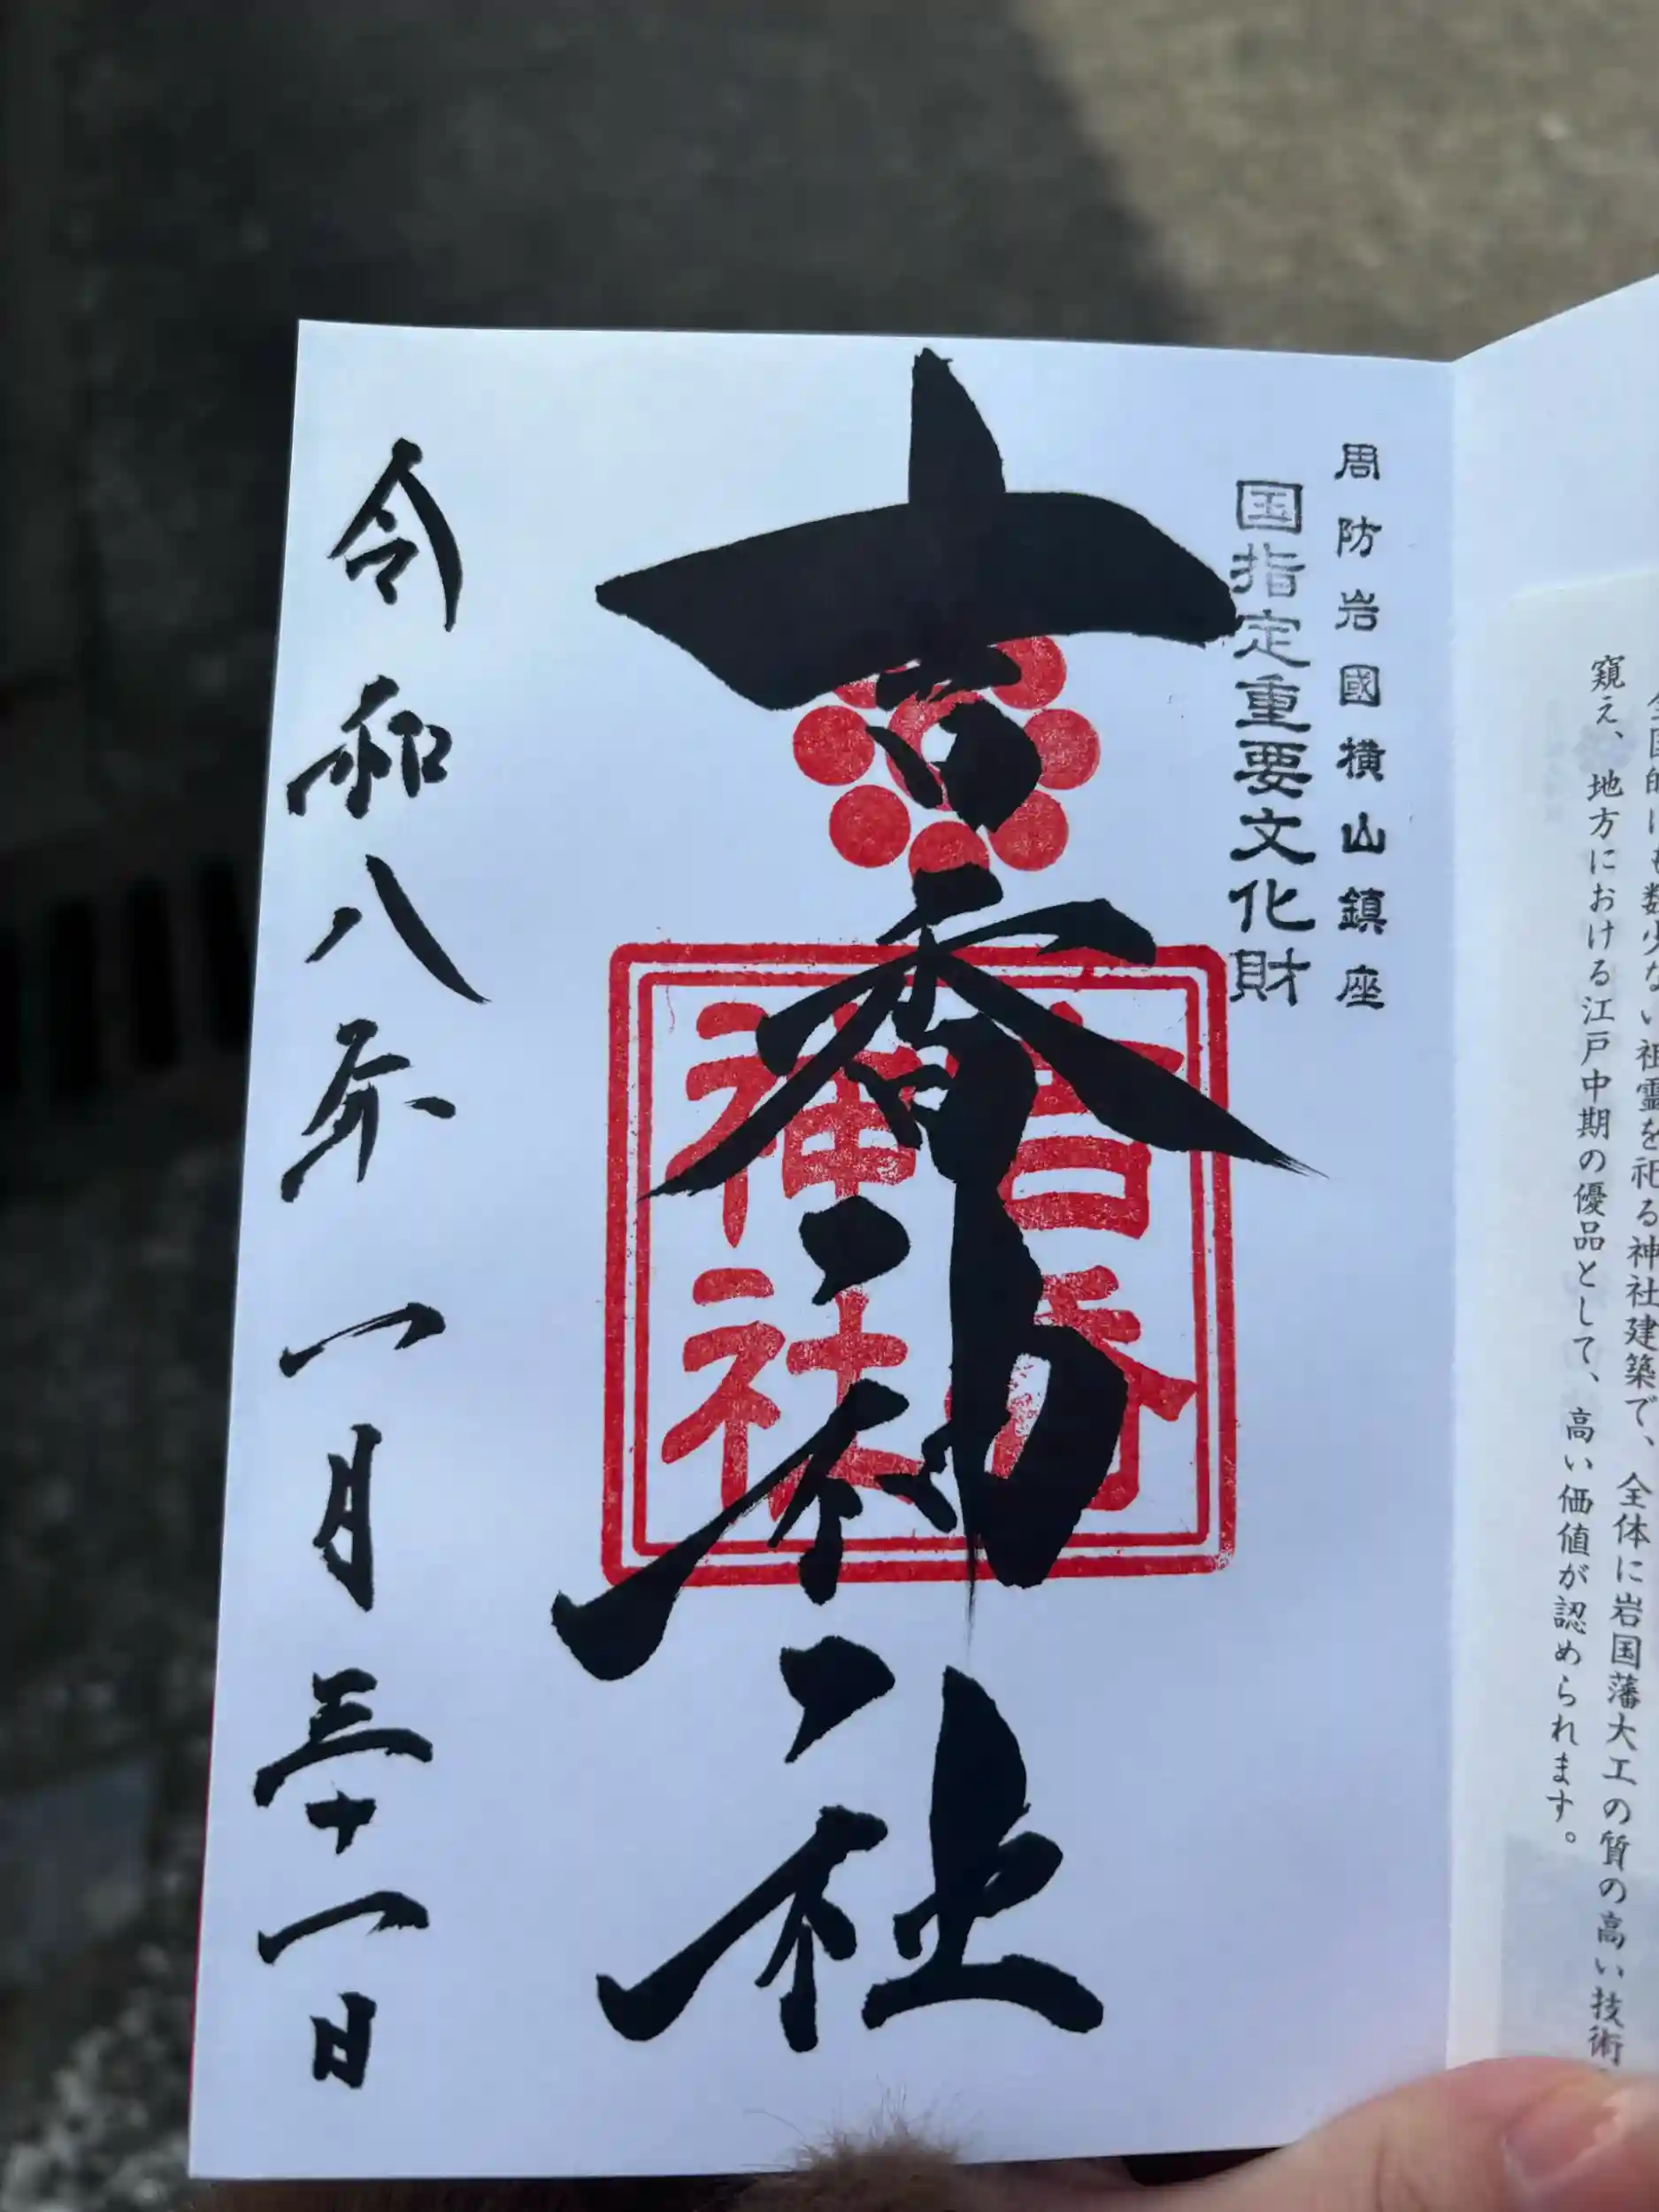 周防岩國横山鎮座
国指定重要文化財
吉香神社
吉香
神社
令和八年一月三十一日
にも数少ない祖霊を祀る神社建築で、全体に岩国藩大工の質の高い技術
窺え、地方における江戸中期の優品として、高い価値が認められます。